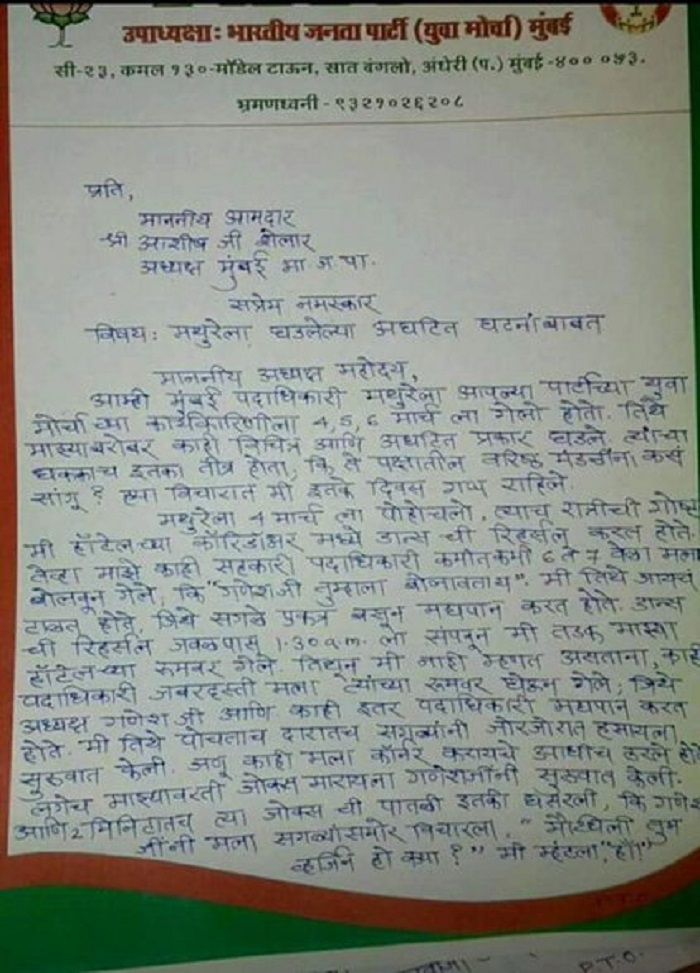 उपाध्यक्षा: भारतीय जनता पार्टी (युवा मोर्चा) मुंबई
सी-२३, कमल १३०-मॉडेल टाऊन, सात बंगलो, अंधेरी (प.) मुंबई-४०० ०५३.
भ्रमणध्वनी - ९३२१०२६२०८
प्रति,
माननीय आमदार
श्री आशीष जी शेलार
अध्यक्ष मुंबई भा.ज.पा.
सप्रेम नमस्कार
विषय: मथुरेला घडलेल्या अघटित घटनांबाबत
माननीय अध्यक्ष महोदय,
आम्ही मुंबई पदाधिकारी मथुरेला आपल्या पार्टीच्या युवा
मोर्चाच्या कार्यकारिणीला 4,5,6 मार्च ला गेलो होतो. तिथे
माझ्याबरोबर काही विचित्र आणि अघटित प्रकार घडले. त्यांचा
धक्काच इतका तीव्र होता, कि ते पक्षातील वरिष्ठ मंडळींना कसं
सांगू? ह्या विचारात मी इतके दिवस गप्प राहिले.
मथुरेला 4 मार्च ला पोहोचलो, त्याच रात्रीची गोष्ट
मी हॉटेलच्या कॉरिडॉअर मध्ये डान्स ची रिहर्सल करत होते.
तेव्हा माझे काही सहकारी पदाधिकारी कमीतकमी 6 ते 7 वेळा मला
बोलवून गेले, कि "गणेशजी तुम्हाला बोलावताय". मी तिथे जायचं
टाळत होते, जिथे सगळे एकत्र बसून मद्यपान करत होते. डान्स
ची रिहर्सल जवळपास 1.30 a.m. ला संपवून मी तडक माझ्या
हॉटेलच्या रूमवर गेले. तिथून मी नाही म्हणत असताना, काही
पदाधिकारी जबरदस्ती मला त्यांच्या रूमवर घेऊन गेले, जिथे
अध्यक्ष गणेश जी आणि काही इतर पदाधिकारी मद्यपान करत
होते. मी तिथे पोचताच दारातच सगळ्यांनी जोरजोरात हसायला
सुरुवात केली. जणू काही मला कॉर्नर करायचे आधीच ठरले हो
लगेच माझ्यावरती जोक्स मारायना गणेशजींनी सुरुवात केली.
आणि 2 मिनिटातच त्या जोक्स ची पातळी इतकी घसरली, कि गणेश
जींनी मला सगळ्यांसमोर विचारला, "मैथिली तुम
व्हर्जिन हो क्या?" मी म्हंटला, "हाँ!"
P.T.O.